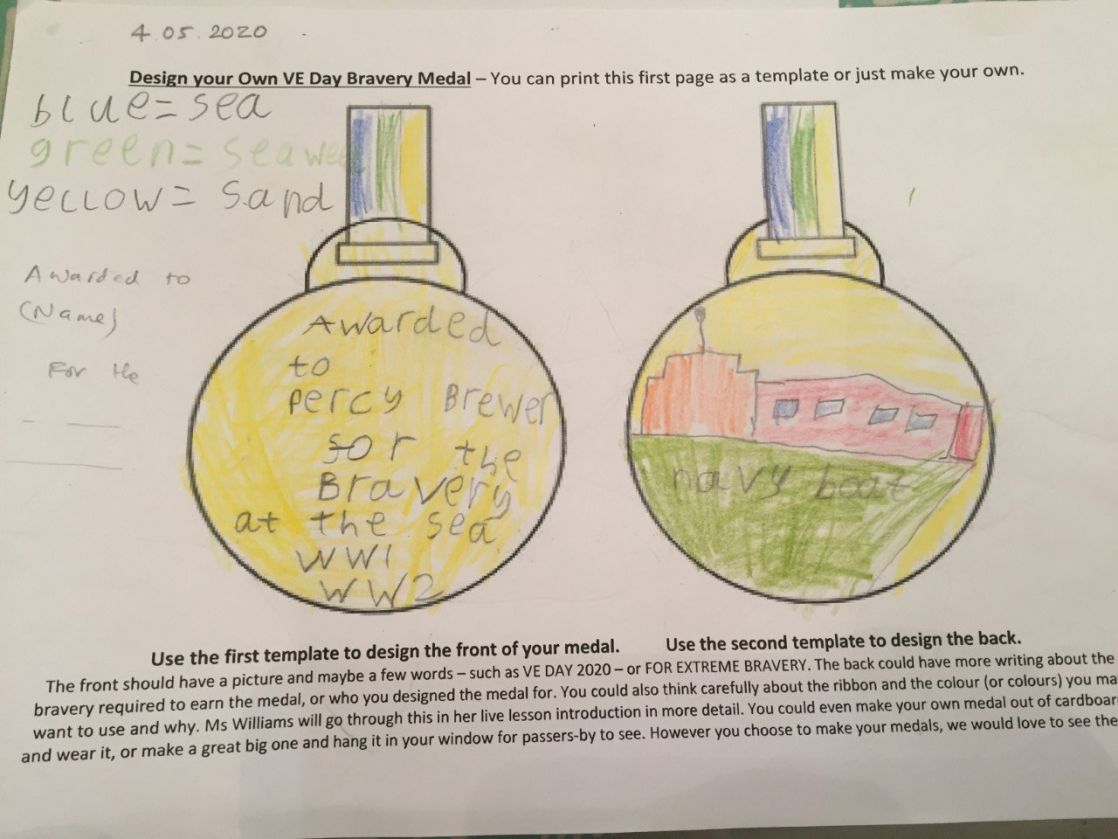 4.05.2020
Design your Own VE Day Bravery Medal – You can print this first page as a template or just make your own.
blue = sea
green = seawee
yellow = sand
Awarded to
(Name)
For the
Awarded
to
percy Brewer
for the
Bravery
at the sea
WW1
WW2
navy boat
Use the first template to design the front of your medal.
Use the second template to design the back.
The front should have a picture and maybe a few words – such as VE DAY 2020 – or FOR EXTREME BRAVERY. The back could have more writing about the
bravery required to earn the medal, or who you designed the medal for. You could also think carefully about the ribbon and the colour (or colours) you ma
want to use and why. Ms Williams will go through this in her live lesson introduction in more detail. You could even make your own medal out of cardboar
and wear it, or make a great big one and hang it in your window for passers-by to see. However you choose to make your medals, we would love to see the